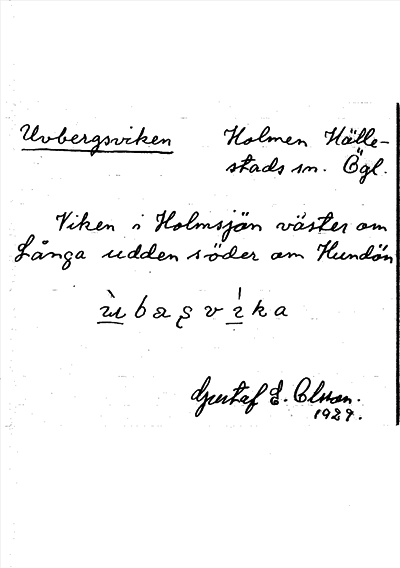 Uvbergsviken Holmen Hälle-
stads sn. Ögl.
Viken i Holmsjön väster om
Långa udden söder om Hundön
Gustaf E. Olsson.
1929.